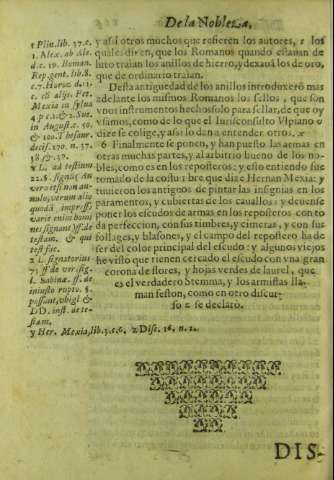 De la Nobleza,
y assi otros muchos que refieren los autores, s los
quales diren, que los Romanos quando estauan de
luto traian los anillos de hierro, y dexauã los de oro,
que de ordinario traian.
Desta antiguedad de los anillos introduxerõ mas
adelante los mismos Romanos los sellos, que son
vnos instrumentos hechos solo para sellar, de que oy
vsamos, como de lo que el Iurisconsulto Vlpiano v
dize se colige, y assi lo dan a entender otros. x
6 Finalmente se ponen, y han puesto las armas en
otras muchas partes, y al arbitrio bueno de los no-
bles, como es en los reposteros; y esto entiendo fue
tomado de la costũbre que dize Hernan Mexia: y
tuuieron los antiguos de pintar las insignias en los
paramentos, y cubiertas de los cauallos: y deuense
poner los escudos de armas en los reposteros con to
da perfeccion, con sus timbres, y cimeras, y con sus
follages, y blasones, y el campo del repostero ha de
ser del color principal del escudo: y algunos viejos
he visto que tienen cercado el escudo con vna gran
corona de flores, y hojas verdes de laurel, que
es el verdadero Stemma, y los armistas lla-
man feston, como en otro discur-
so z se declarò.
s Plin. lib. 37. c.
1. Mex. ab Ale.
d. c. 19. Roman.
Rep. gent. lib. 8.
c. 7. Horoz. d. l. 1.
c. eli alijs. Pet.
Mexia in sylua
4 p c. 2. & 2. Sue.
in August. c. 50.
& 100. Thesaur.
decis. 270. n. 37.
38. & 39.
v L. ad testium
22. §. signũ. An
vero est non an-
nulo, verum alio
quodã impress.
varie enim homi
nes signant ff. de
testam. & qui
test. fac.
x L. signatorius
71 ff. de ver. sig.
l. Sabinæ. ff. de
iniusto rupto. §.
possunt, vbi gl. &
DD. inst. de te-
stam.
y Her. Mexia, lib. 3. c. 6. z Disc. 16. n. 1.
DIS-